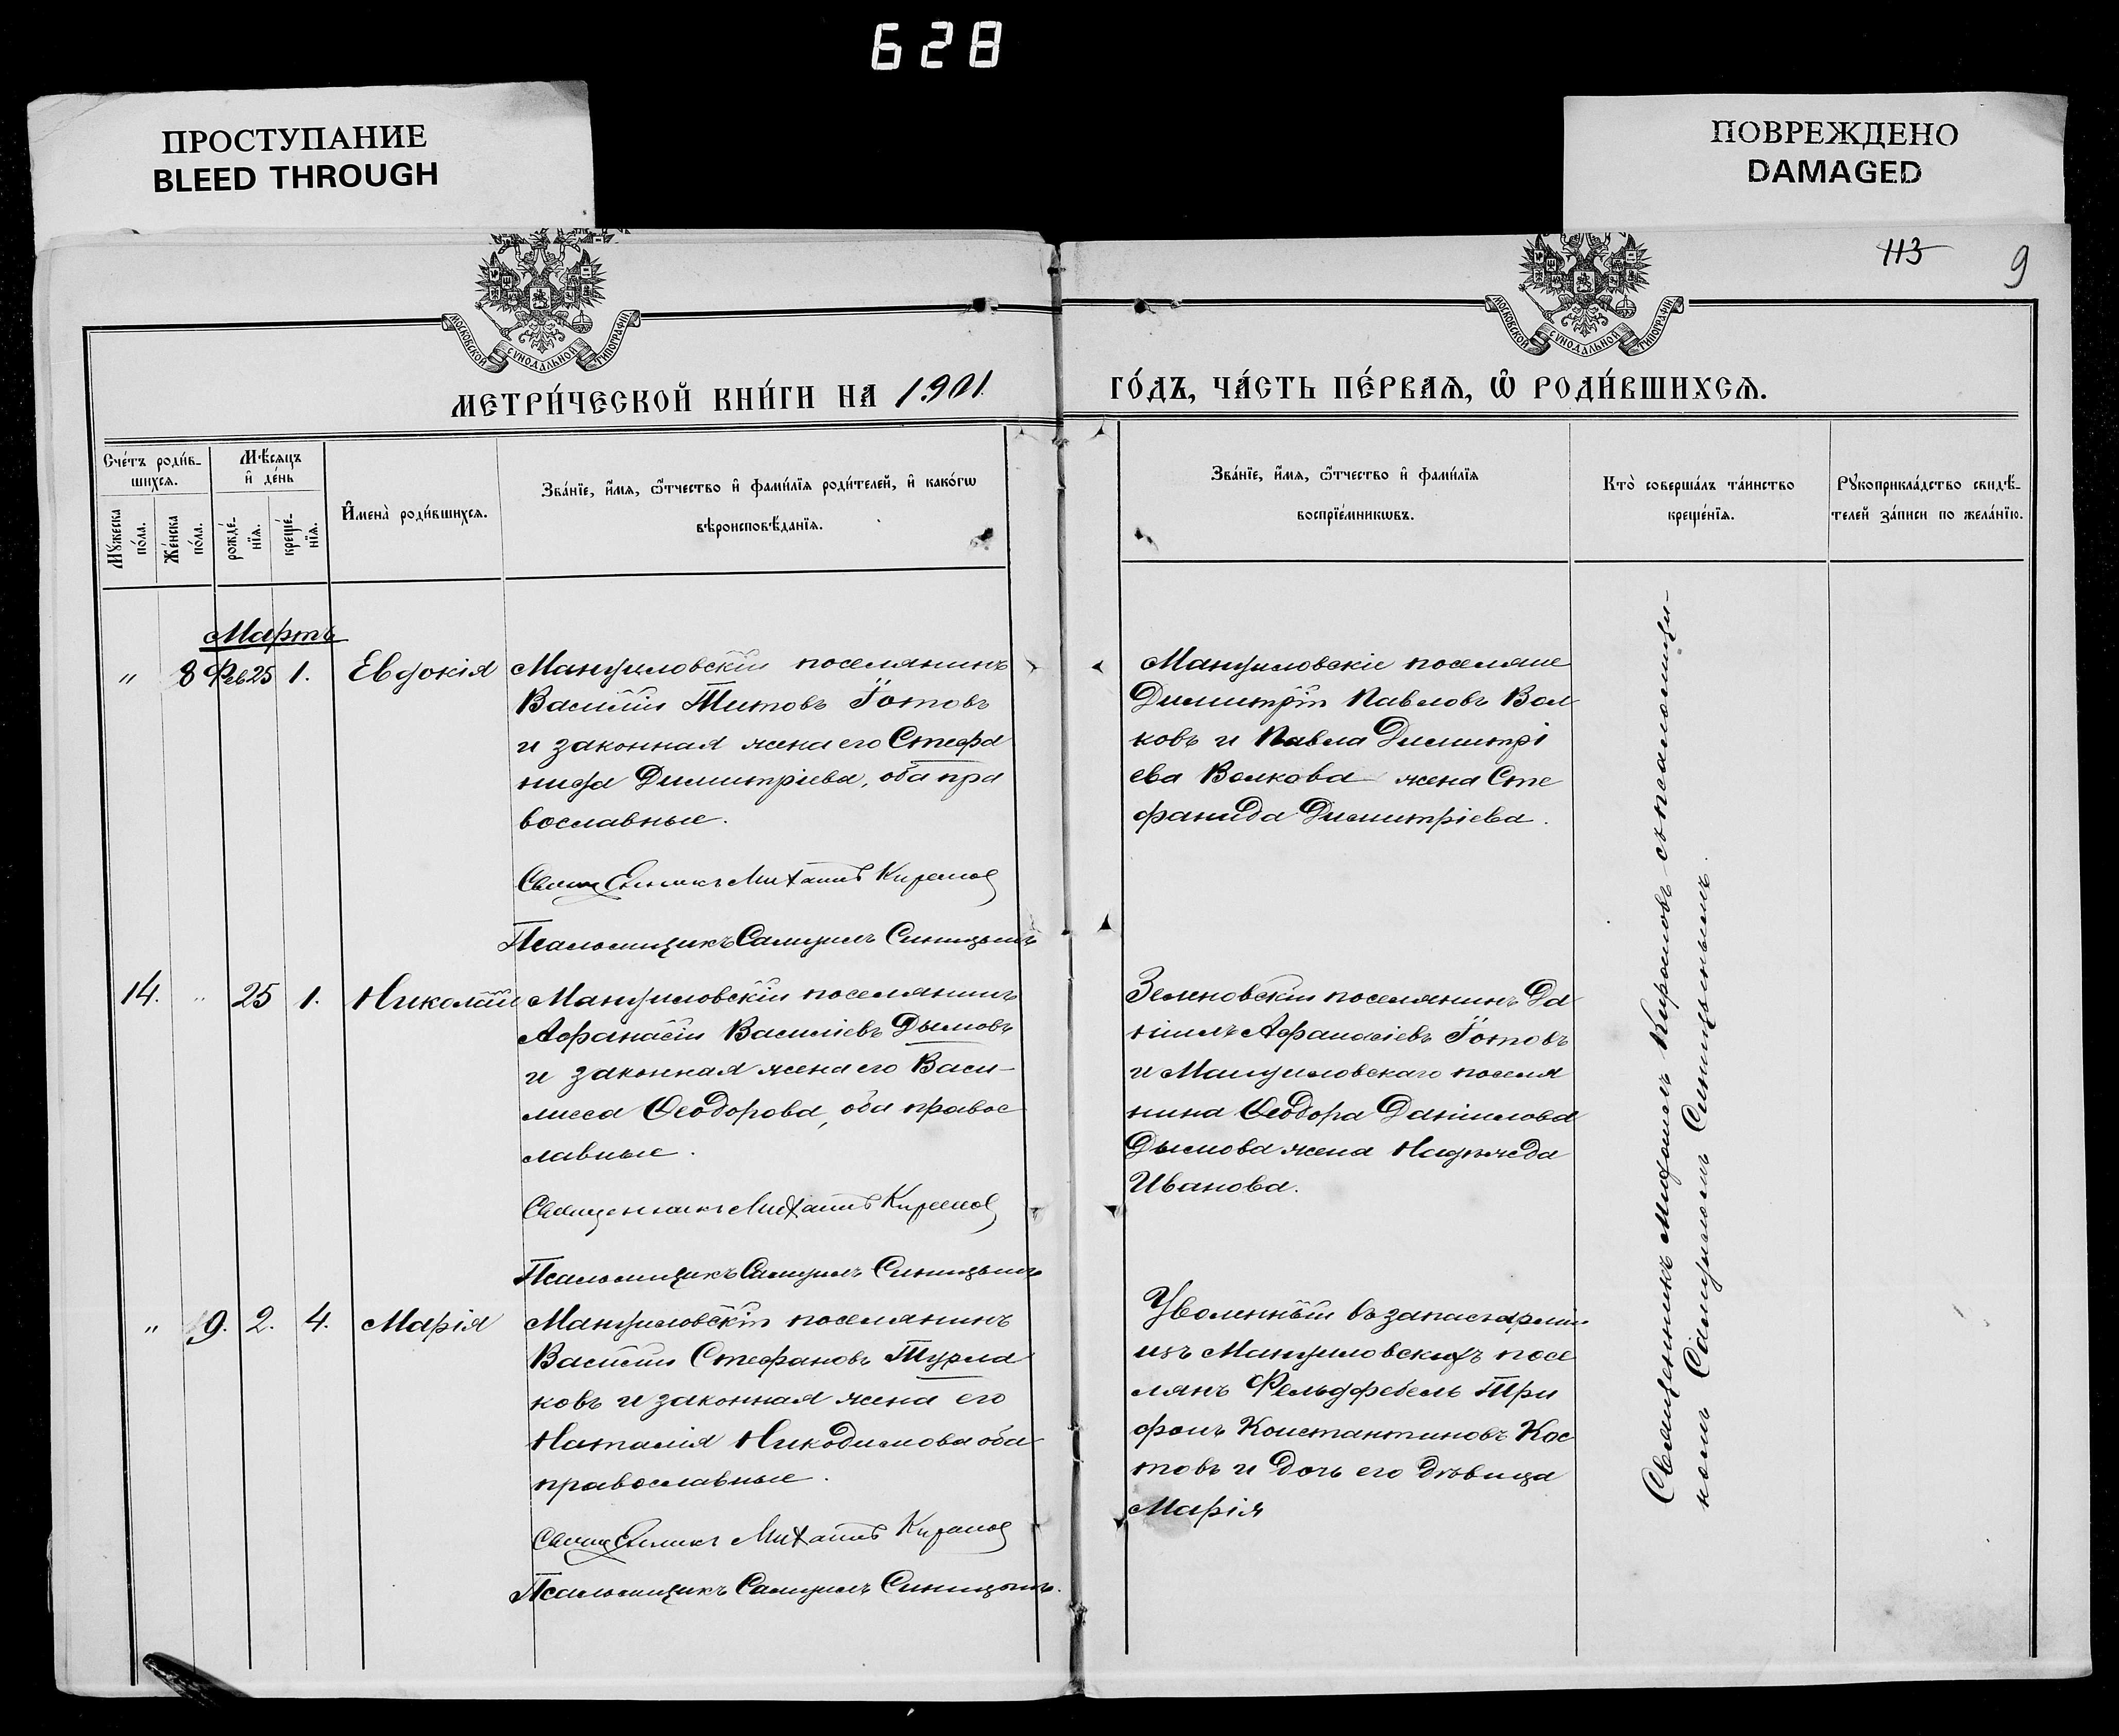 628
ПРОСТУПАНИЕ
BLEED THROUGH
ПОВРЕЖДЕНО
DAMAGED
113
9
МОСКОВСКОЙ СУНОДАЛЬНОЙ ТИПОГРАФІИ
МОСКОВСКОЙ СУНОДАЛЬНОЙ ТИПОГРАФІИ
МЕТРИ́ЧЕСКОЙ КНИ́ГИ НА 1901
ГО́ДЪ, ЧА́СТЬ ПЕ́РВАѦ, Ѡ҆ РОДИ́ВШИХСѦ.
Сче́тъ роди́в-
шихсѧ.
Мꙋ́жеска
по́ла.
Же́нска
по́ла.
Мѣ́сѧцъ
и҆ де́нь
рожде́-
нїѧ.
креще́-
нїѧ.
И҆мена̀ роди́вшихсѧ.
Зва́нїе, и҆́мѧ, ѻ҆́тчество и҆ фами́лїѧ роди́телей, и҆ како́гѡ
вѣроисповѣ́данїѧ.
Зва́нїе, и҆́мѧ, ѻ҆́тчество и҆ фами́лїѧ
воспрїе́мникѡвъ.
Кто̀ соверша́лъ та́инство
креще́нїѧ.
Рꙋкоприкла́дство свидѣ́-
телей за́писи по жела́нїю.
Мартъ
" 8 Фев 25 1. Евдокія
Мануиловскій поселянинъ
Василій Титовъ Готовъ
и законная жена его Стефа
нида Димитріева, оба пра
вославные.
Священникъ Михаилъ Кирановъ
Псаломщикъ Самуилъ Синицынъ
Мануиловскіе поселяне
Димитрій Павловъ Вол
ковъ и Павла Димитрі
ева Волкова жена Сте
фанида Димитріева.
14. " 25 1. Николай
Мануиловскій поселянинъ
Афанасій Василіевъ Дымовъ
и законная жена его Васи-
лисса Ѳеодорова, оба правос
лавные.
Священникъ Михаилъ Кирановъ
Псаломщикъ Самуилъ Синицынъ
Да
ніилъ Афанасіевъ Готовъ
и Мануиловскаго поселя
нина Ѳеодора Даніилова
Дымова жена Надежда
Иванова.
" 9. 2. 4. Марія
Мануиловскій поселянинъ
Василій Стефановъ Турла
ковъ и законная жена его
Наталія Никодимова оба
православные.
Священникъ Михаилъ Кирановъ
Псаломщикъ Самуилъ Синицынъ.
Уволенный въ запасъ арміи
изъ Мануиловскихъ посе
лянъ Фельдфебель Три
фонъ Константиновъ Кос
товъ и дочь его дѣвица
Марія
Священникъ Михаилъ Кирановъ съ псаломщи-
комъ Самуиломъ Синицынымъ.